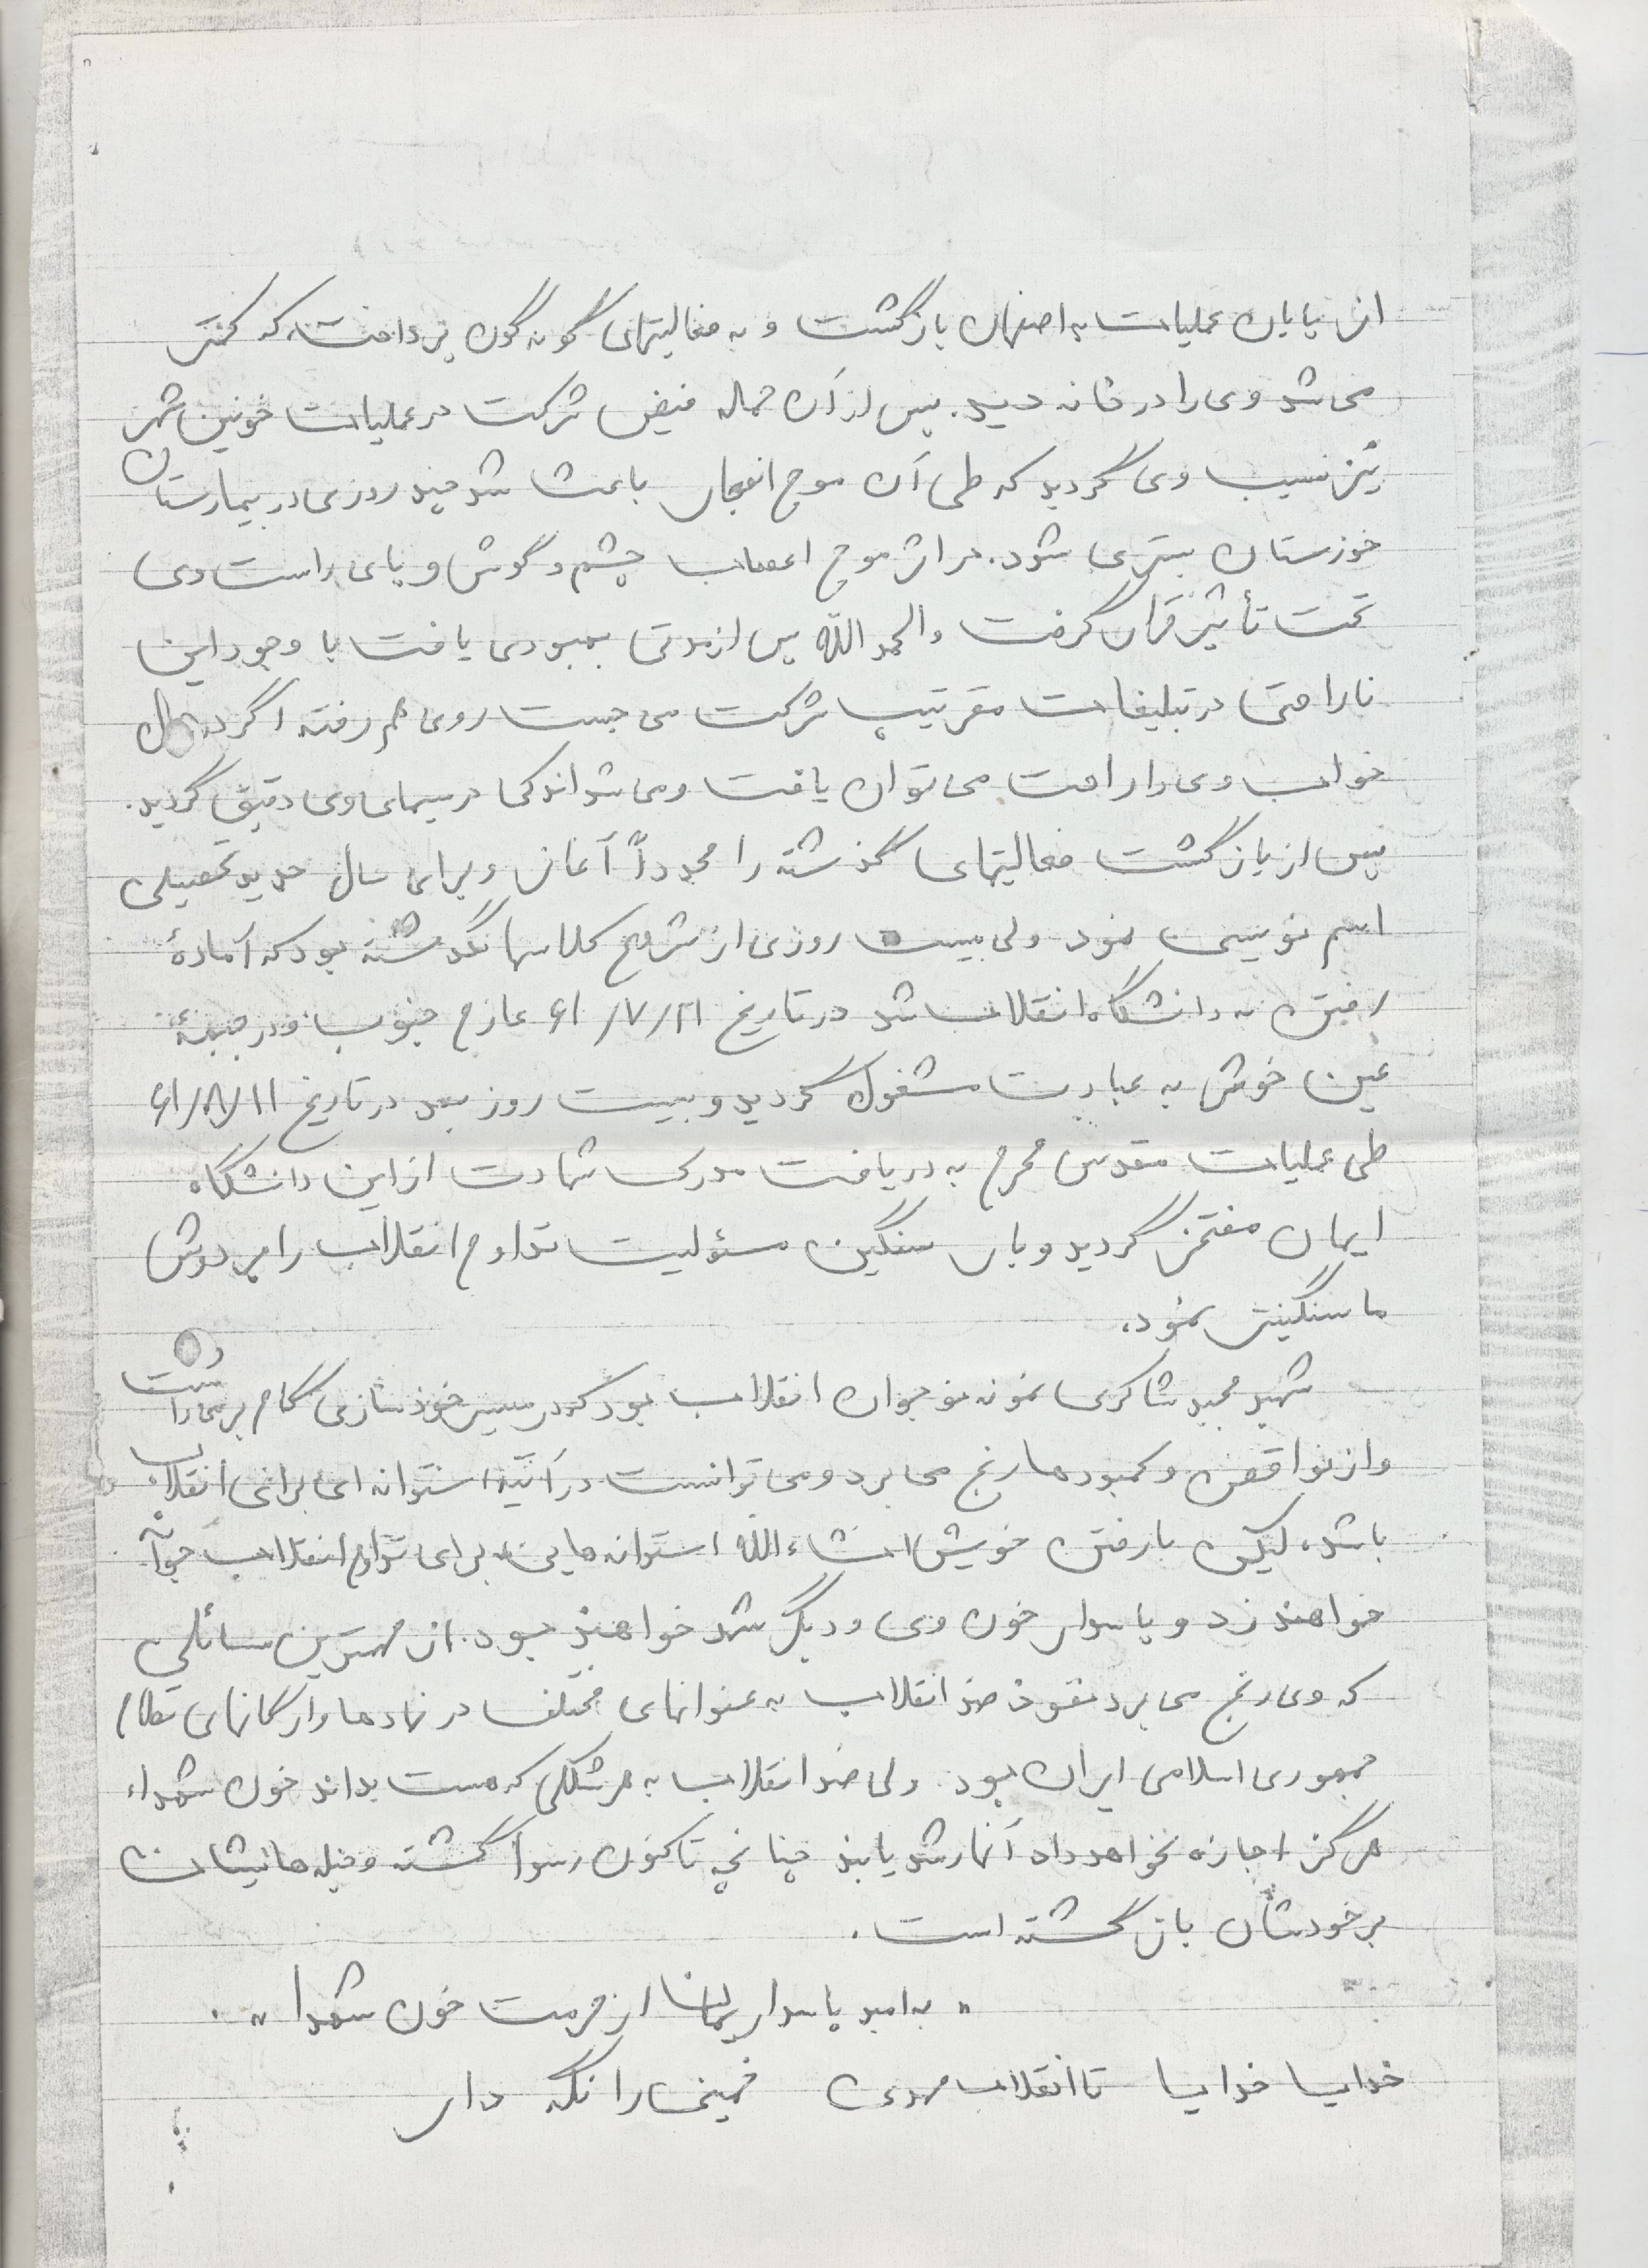 از پایان عملیات به اصفهان بازگشت و به فعالیتهای گونه گون پرداخت که کمتر
می شد وی را در خانه دید. پس از آن حماله فیض شرکت در عملیات خونین شهر
نیز نسیب وی گردید که طی آن موج انفجار باعث شد چند روزی در بیمارستان
خوزستان بستری شود. در اثر موج اعصاب چشم و گوش و پای راست وی
تحت تأثیر قرار گرفت والحمد الله پس از مدتی بهبودی یافت با وجود این
ناراحتی در تبلیغات مقر تیپ شرکت می جست روی هم رفته اگر در حال
خواب وی را راحت می توان یافت و می شد اندکی در سیمای وی دقیق گردید.
پس از بازگشت فعالیتهای گذشته را مجدداً آغاز و برای سال جدید تحصیلی
اسم نویسی نمود ولی بیست روزی از شروع کلاسها نگذشته بود که آمادهٔ
رفتن به دانشگاه انقلاب شد در تاریخ ۶۱/۷/۲۱ عازم جنوب و در جبههٔ
عین خوش به عبادت مشغول گردید و بیست روز بعد در تاریخ ۶۱/۸/۱۱
طی عملیات مقدس محرم به دریافت مدرک شهادت از این دانشگاه
ایمان مفتخر گردید و بار سنگین مسئولیت تداوم انقلاب را بر دوش
ما سنگینتر نمود.
شهید مجید شاکری نمونه نوجوان انقلاب بود که در مسیر خودسازی گام بر می داشت
و از نواقص و کمبودها رنج می برد و می توانست در آتیه استوانه ای برای انقلاب
باشد، لیکن با رفتن خویش انشاءالله استوانه هایی برای تداوم انقلاب جوانه
خواهند زد و پاسدار خون وی و دیگر شهدا خواهند بود. از مهمترین مسائلی
که وی رنج می برد نفوذ ضد انقلاب به عنوانهای مختلف در نهادها و ارگانهای نظام
جمهوری اسلامی ایران بود. ولی ضد انقلاب به هر شکلی که هست بداند خون شهداء
هرگز اجازه نخواهد داد آنها رشد یابند چنانچه تاکنون رسوا گشته و حیله هایشان
بر خودشان بازگشته است.
" به امید پاسداریمان از حرمت خون شهدا ".
خدایا خدایا تا انقلاب مهدی خمینی را نگه دار